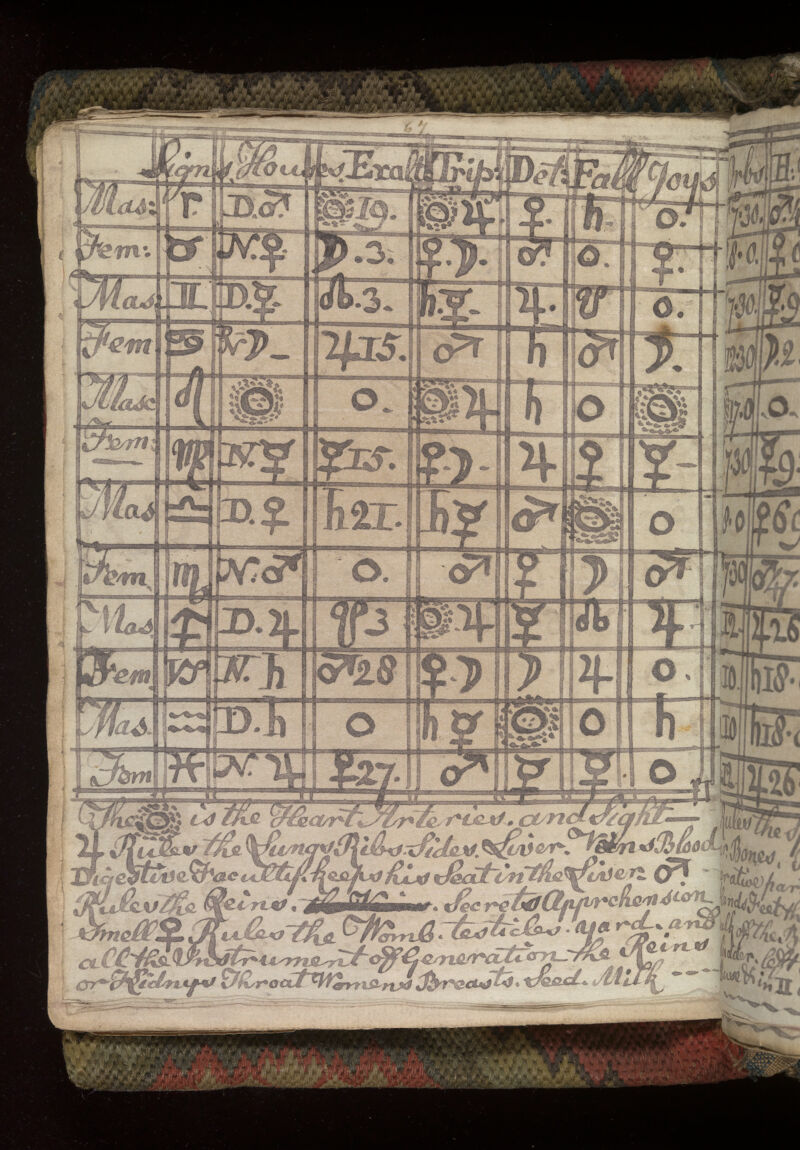 67
Signs Houses Exalt: Trip: Det: Fall Joys
Mas: ♈ D.♂ ☉19. ☉♃ ♀. ♄ o.
Fem: ♉ N.♀ ☽.3. ♀.☽. ♂. o. ♀.
Mas: ♊ D.☿ ☊.3. ♄.☿ ♃. ☋ o.
Fem ♋ ☽ ♃15. ♂ ♄ ♂ ☽.
Masc ♌ ☉ o. ☉♃ ♄ o ☉
Fem: ♍ N.☿ ☿15. ♀.☽ ♃ ♀ ☿
Mas ♎ D.♀ ♄21. ♄☿ ♂ ☉ o
Fem ♏ N.♂ o. ♂ ♀ ☽ ♂
Mas ♐ D.♃ ☋3 ☉.♃ ☿ ☊ ♃
Fem ♑ N.♄ ♂28 ♀.☽ ☽ ♃ o.
Mas. ♒ D.♄ o ♄☿ ☉ o ♄
Fem ♓ N.♃ ♀27. ♂ ☿ ☿. o
The ☉ is the Heart Arteries. and Sight—
♃ Rules the Lungs Ribs. Sides. Liver. Veins Blood
Digestive Facultif. keeps his Seat in the Liver. ♂ -
Rules the Reins. Secrets Apprehension
Smell ♀ Rules the Womb. testicles. yard. and
all the Instrument of Generation the Reins
or Kidnys Throat Womens Breasts. Seed. Milk ----
Orbs H:
7.30. ♂
8.0. ♀
7.30. ☿.9
12.30 ☽.2
17.0 .o.
7.30 ☿9
8.0 ♀6
7.30 ♂47.
12. ♃26
10. ♄18.
10 ♄18.
12. ♃26
Rules the
Bones.